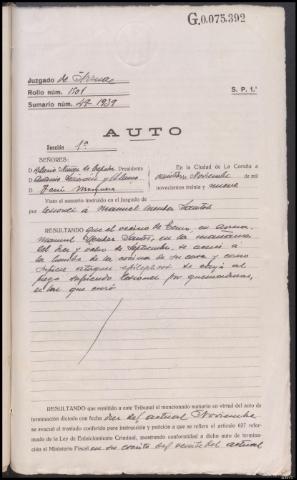 G.0.075.392
Juzgado de
Rollo núm. 1501
Sumario núm. 48-1939
S. P. 1.ª
AUTO
Sección 1ª
SEÑORES:
D. Presidente
D. Antonio
D.
En la Ciudad de La Coruña a
Noviembre de mil
novecientos treinta y nueve
Visto el sumario instruido en el Juzgado de
por lesiones a Manuel Santos
RESULTANDO que el vecino de
Manuel Santos, en la mañana
del de Septiembre, se acercó a
la lumbre de la cocina de su casa y como
sufriese ataques epilépticos se cayó al
fuego sufriendo lesiones por quemaduras,
de las que curó
RESULTANDO que remitido a este Tribunal el mencionado sumario en virtud del auto de
terminación dictado con fecha diez del actual Noviembre
se evacuó el traslado conferido para instrucción y petición a que se refiere el artículo 627 refor-
mado de la Ley de Enjuiciamiento Criminal, mostrando conformidad a dicho auto de termina-
ción el Ministerio Fiscal en su escrito del veinte del actual